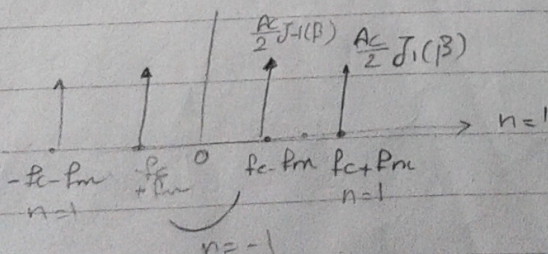 Ac/2 J-1(β) Ac/2 J1(β)
n=1
-fc-fm -fc+fm 0 fc-fm fc+fm
n=1 n=1
n=-1